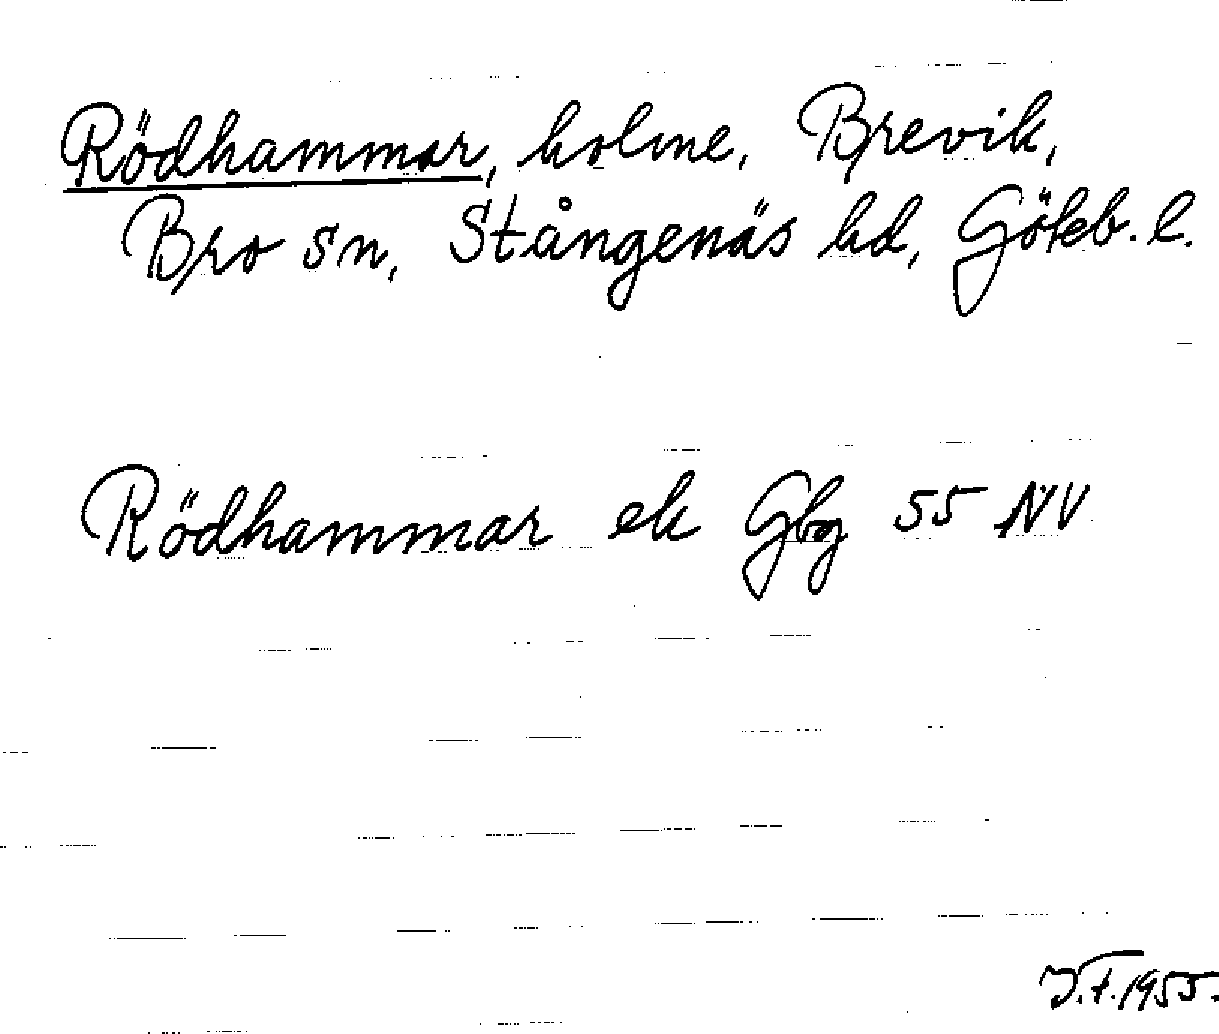 Rödhammar, holme, Brevik,
Bro sn, Stångenäs hd, Göteb. l.
Rödhammar ek Gbg 55 NV
J.F. 1955.